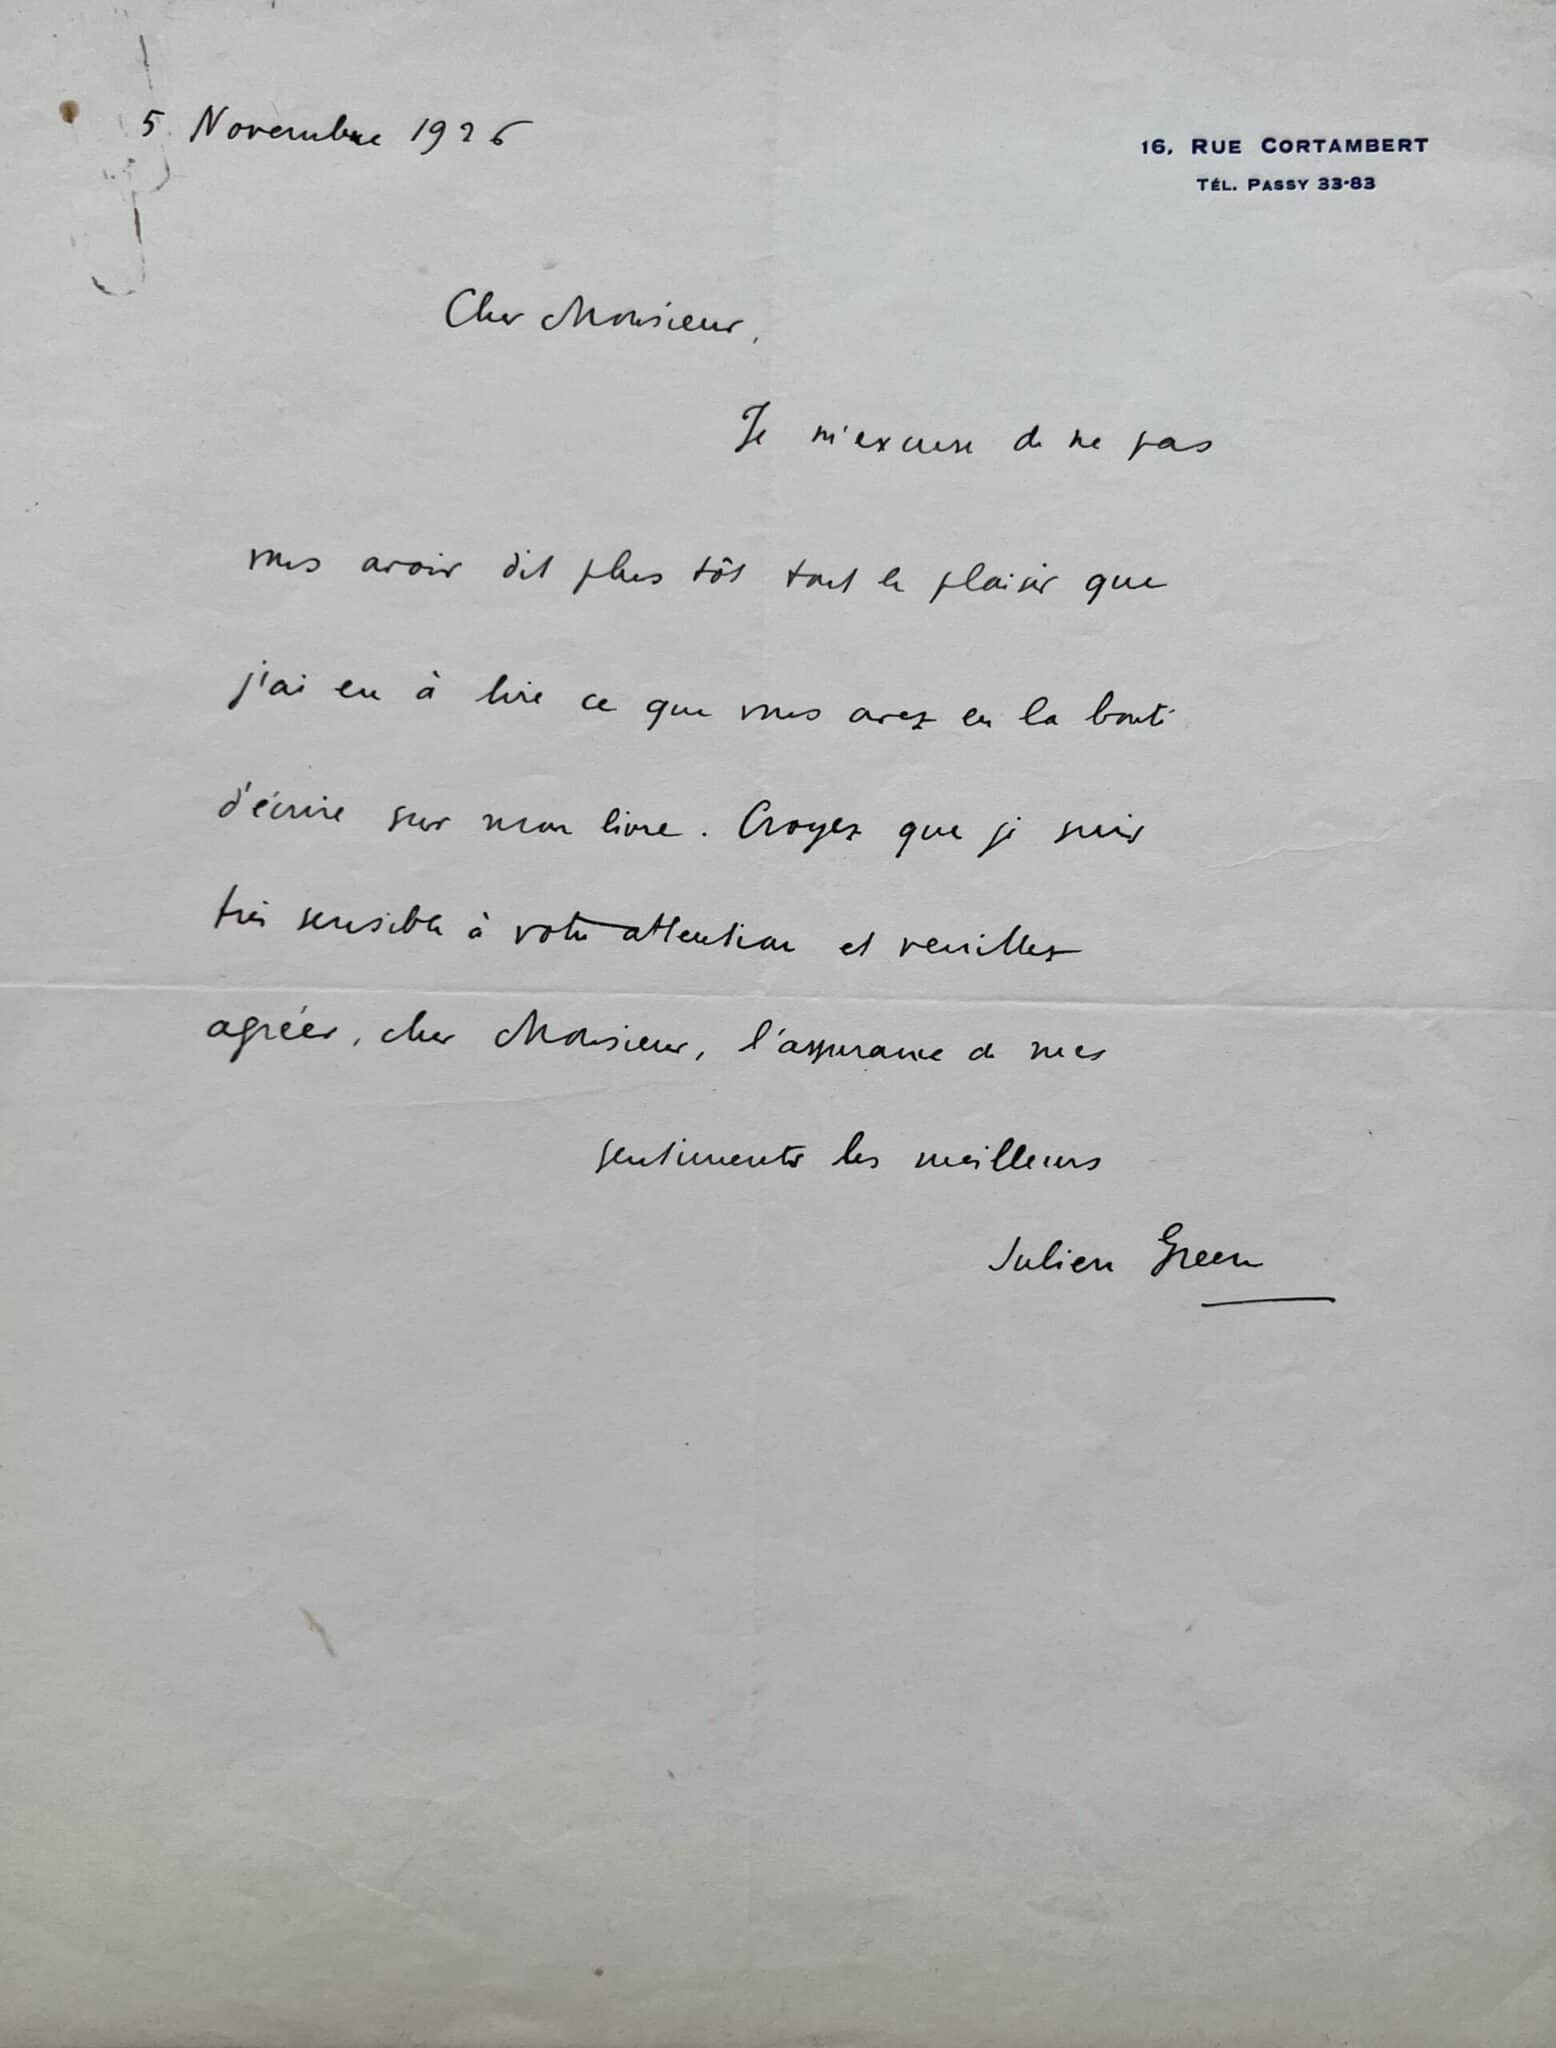 5 Novembre 1926
16, RUE CORTAMBERT
TÉL. PASSY 33-83
Cher Monsieur,
Je m'excuse de ne pas
vous avoir dit plus tôt tout le plaisir que
j'ai eu à lire ce que vous avez eu la bonté
d'écrire sur mon livre. Croyez que je suis
très sensible à votre attention et veuillez
agréer, cher Monsieur, l'assurance de mes
sentiments les meilleurs
Julien Green